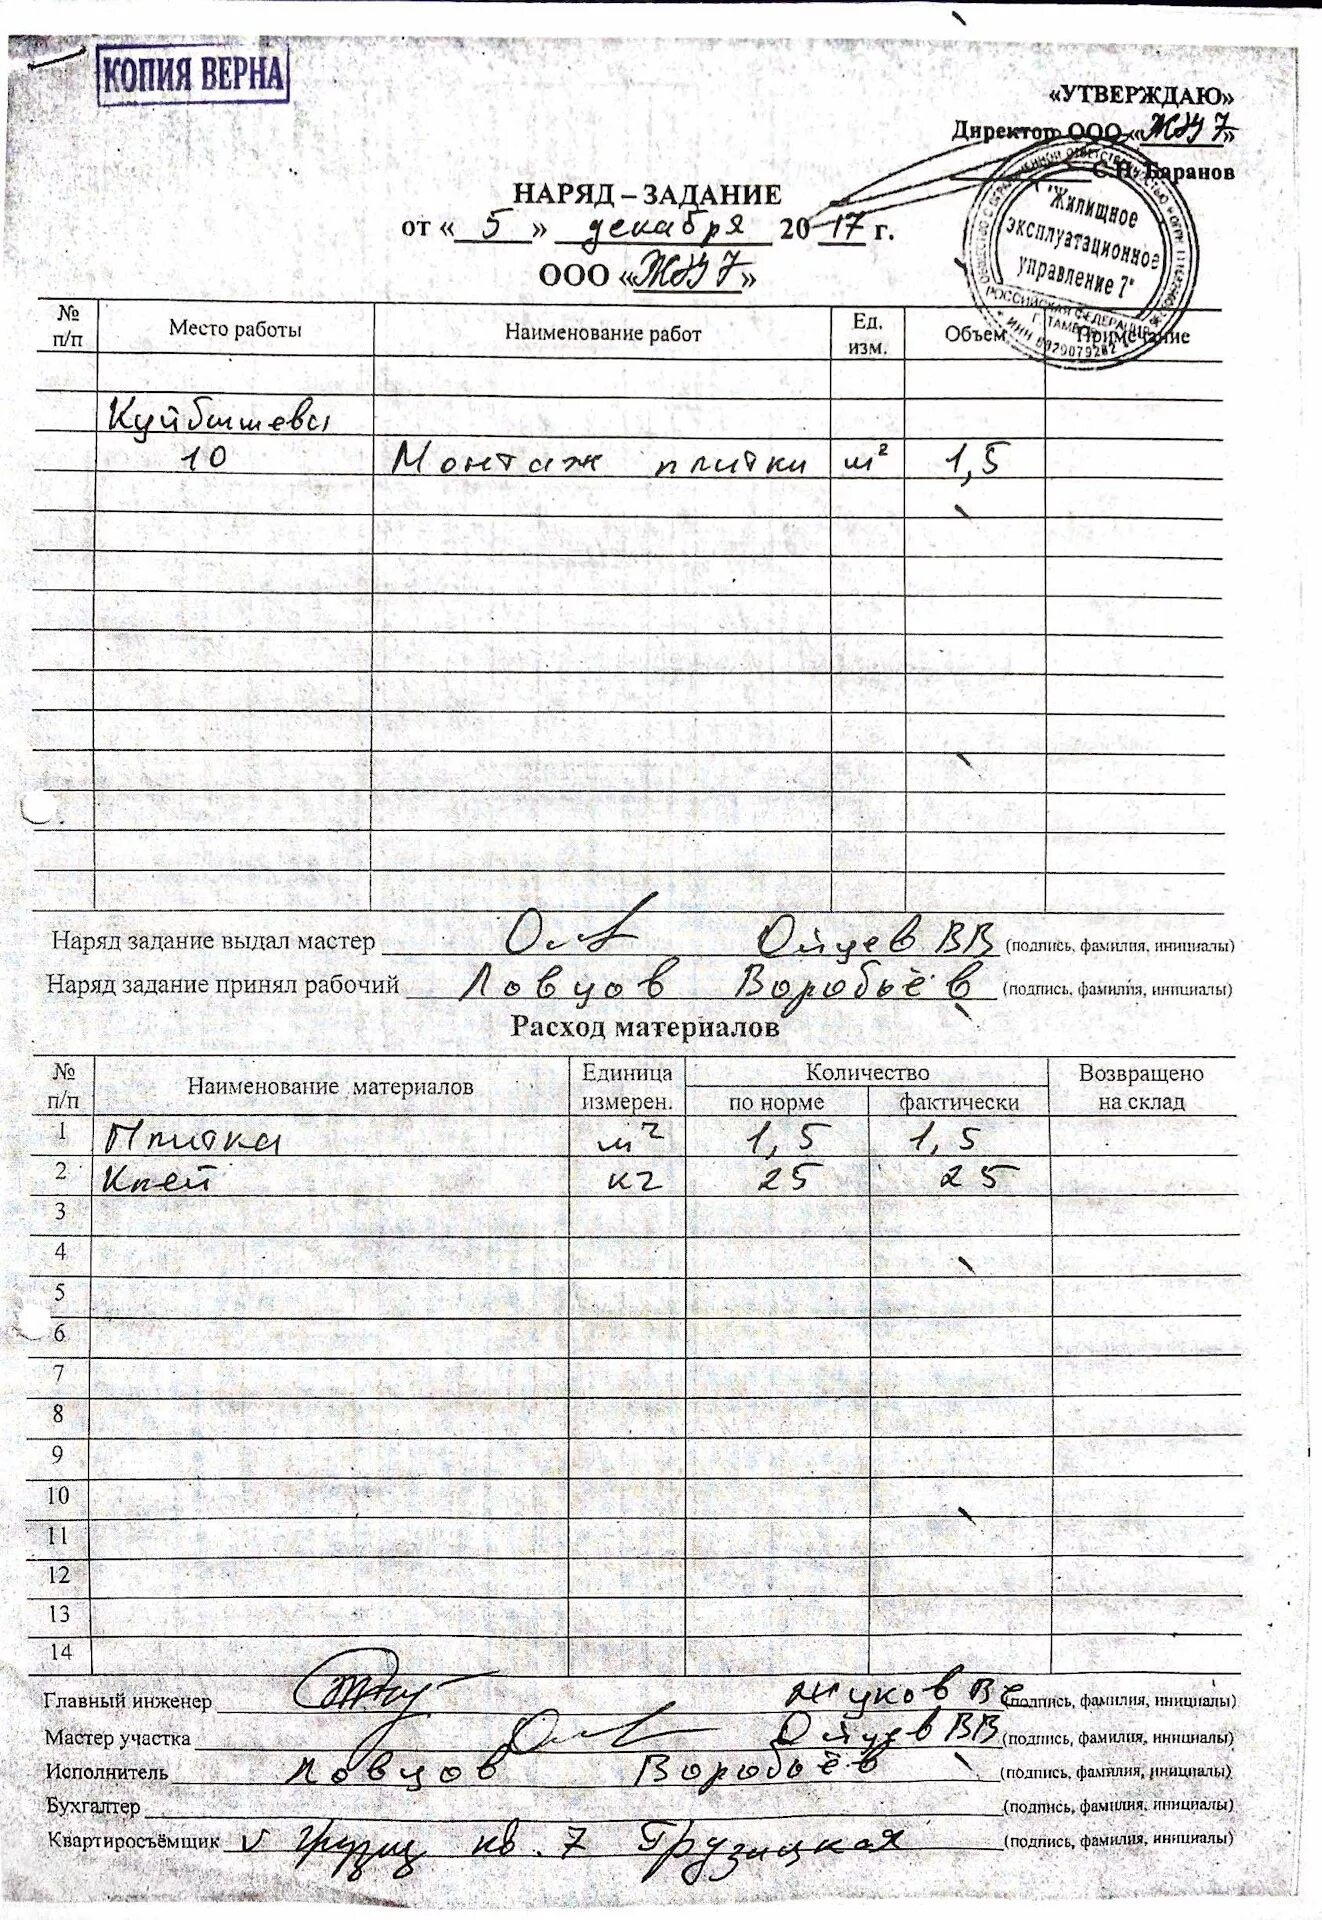 КОПИЯ ВЕРНА
«УТВЕРЖДАЮ»
Директор ООО «ЖЭУ 7»
С.Н. Баранов
НАРЯД – ЗАДАНИЕ
от « 5 » декабря 20 17 г.
ООО «ЖЭУ 7»
"Жилищное
эксплуатационное
управление 7"
РОССИЙСКАЯ ФЕДЕРАЦИЯ
Г. ТАМБОВ
№ п/п Место работы Наименование работ Ед. изм. Объем Примечание
Куйбышева
10 Монтаж плитки м² 1,5
Наряд задание выдал мастер Ойцев ВВ (подпись, фамилия, инициалы)
Наряд задание принял рабочий Ловцов Воробьёв (подпись, фамилия, инициалы)
Расход материалов
№ п/п Наименование материалов Единица измерен. Количество Возвращено на склад
по норме фактически
1 Плитка м² 1,5 1,5
2 Клей кг 25 25
3
4
5
6
7
8
9
10
11
12
13
14
Главный инженер Жуков ВС (подпись, фамилия, инициалы)
Мастер участка Ойцев ВВ (подпись, фамилия, инициалы)
Исполнитель Ловцов Воробьёв (подпись, фамилия, инициалы)
Бухгалтер (подпись, фамилия, инициалы)
Квартиросъёмщик v кв. 7 Грузицкая (подпись, фамилия, инициалы)